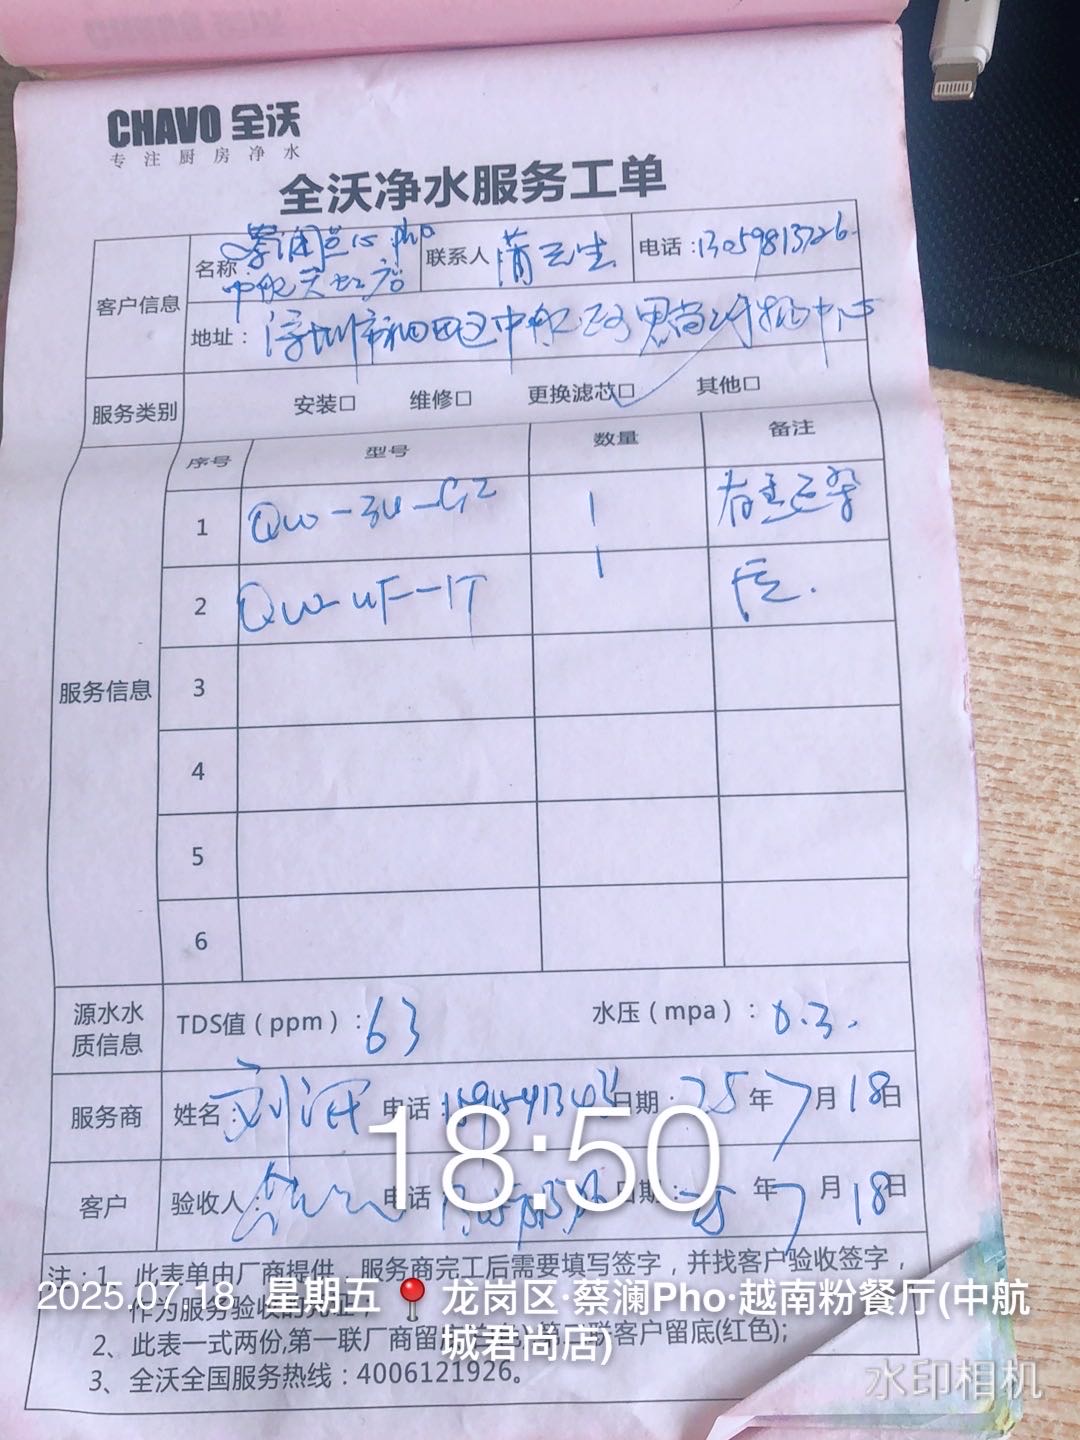 CHAVO 全沃
专注厨房净水
全沃净水服务工单
客户信息
名称 Pho
联系人
电话：13059813726
地址：深圳市福田区中航
服务类别 安装□ 维修□ 更换滤芯□ 其他□
服务信息
序号 型号 数量 备注
1 QW-3U-G2 1
2 QW-UF-1T 1
3
4
5
6
源水水质信息
TDS值（ppm）：63 水压（mpa）：0.3.
服务商 姓名：刘 电话： 日期：25年7月18日
客户 验收人： 电话 日期：25年7月18日
18:50
注：1、此表单由厂商提供，服务商完工后需要填写签字，并找客户验收签字，
作为服务验收的
2、此表一式两份,第一联厂商留 联客户留底(红色);
3、全沃全国服务热线：4006121926。
2025.07.18 星期五 龙岗区·蔡澜Pho·越南粉餐厅(中航
城君尚店)
水印相机